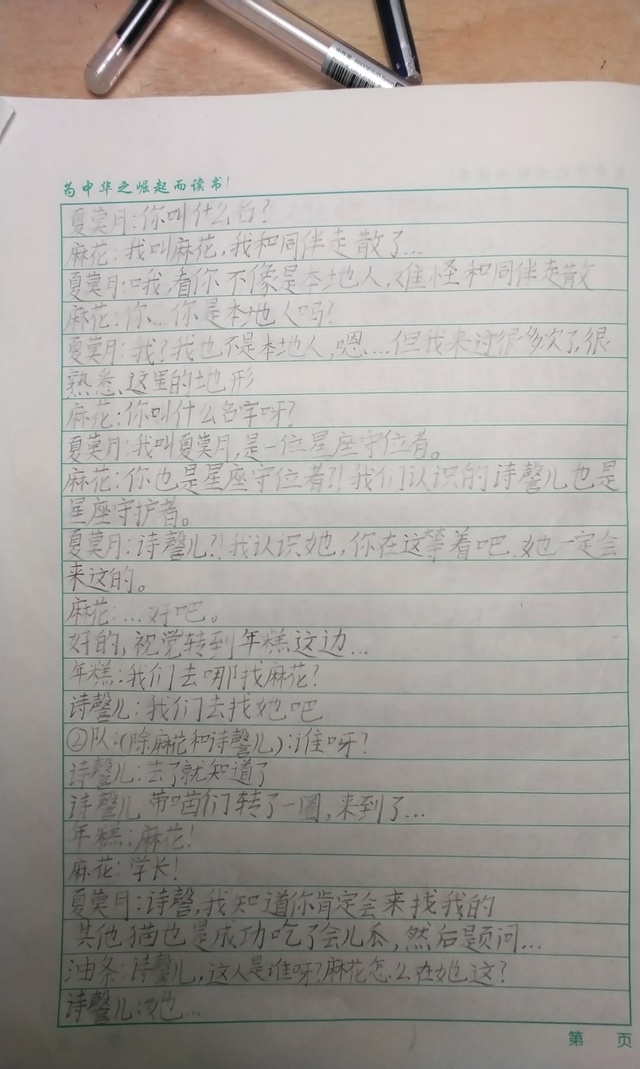 为中华之崛起而读书!
夏莫月:你叫什么名?
麻花:我叫麻花,我和同伴走散了...
夏莫月:哦,看你不像是本地人,难怪和同伴走散
麻花:你...你是本地人吗?
夏莫月:我?我也不是本地人,嗯...但我来过很多次了,很
熟悉这里的地形
麻花:你叫什么名字呀?
夏莫月:我叫夏莫月,是一位星座守位者。
麻花:你也是星座守位者?!我们认识的诗馨儿也是
星座守护者。
夏莫月:诗馨儿?!我认识她,你在这等着吧,她一定会
来这的。
麻花:...好吧。
好的,视觉转到年糕这边...
年糕:我们去哪找麻花?
诗馨儿:我们去找她吧
②队:(除麻花和诗馨儿):谁呀?
诗馨儿:去了就知道了
诗馨儿带喵们转了一圈,来到了...
年糕:麻花!
麻花:学长!
夏莫月:诗馨,我知道你肯定会来找我的
其他猫也是成功吃了会儿瓜,然后是页问...
油条:诗馨儿,这人是谁呀?麻花怎么在她这?
诗馨儿:她...
第 页